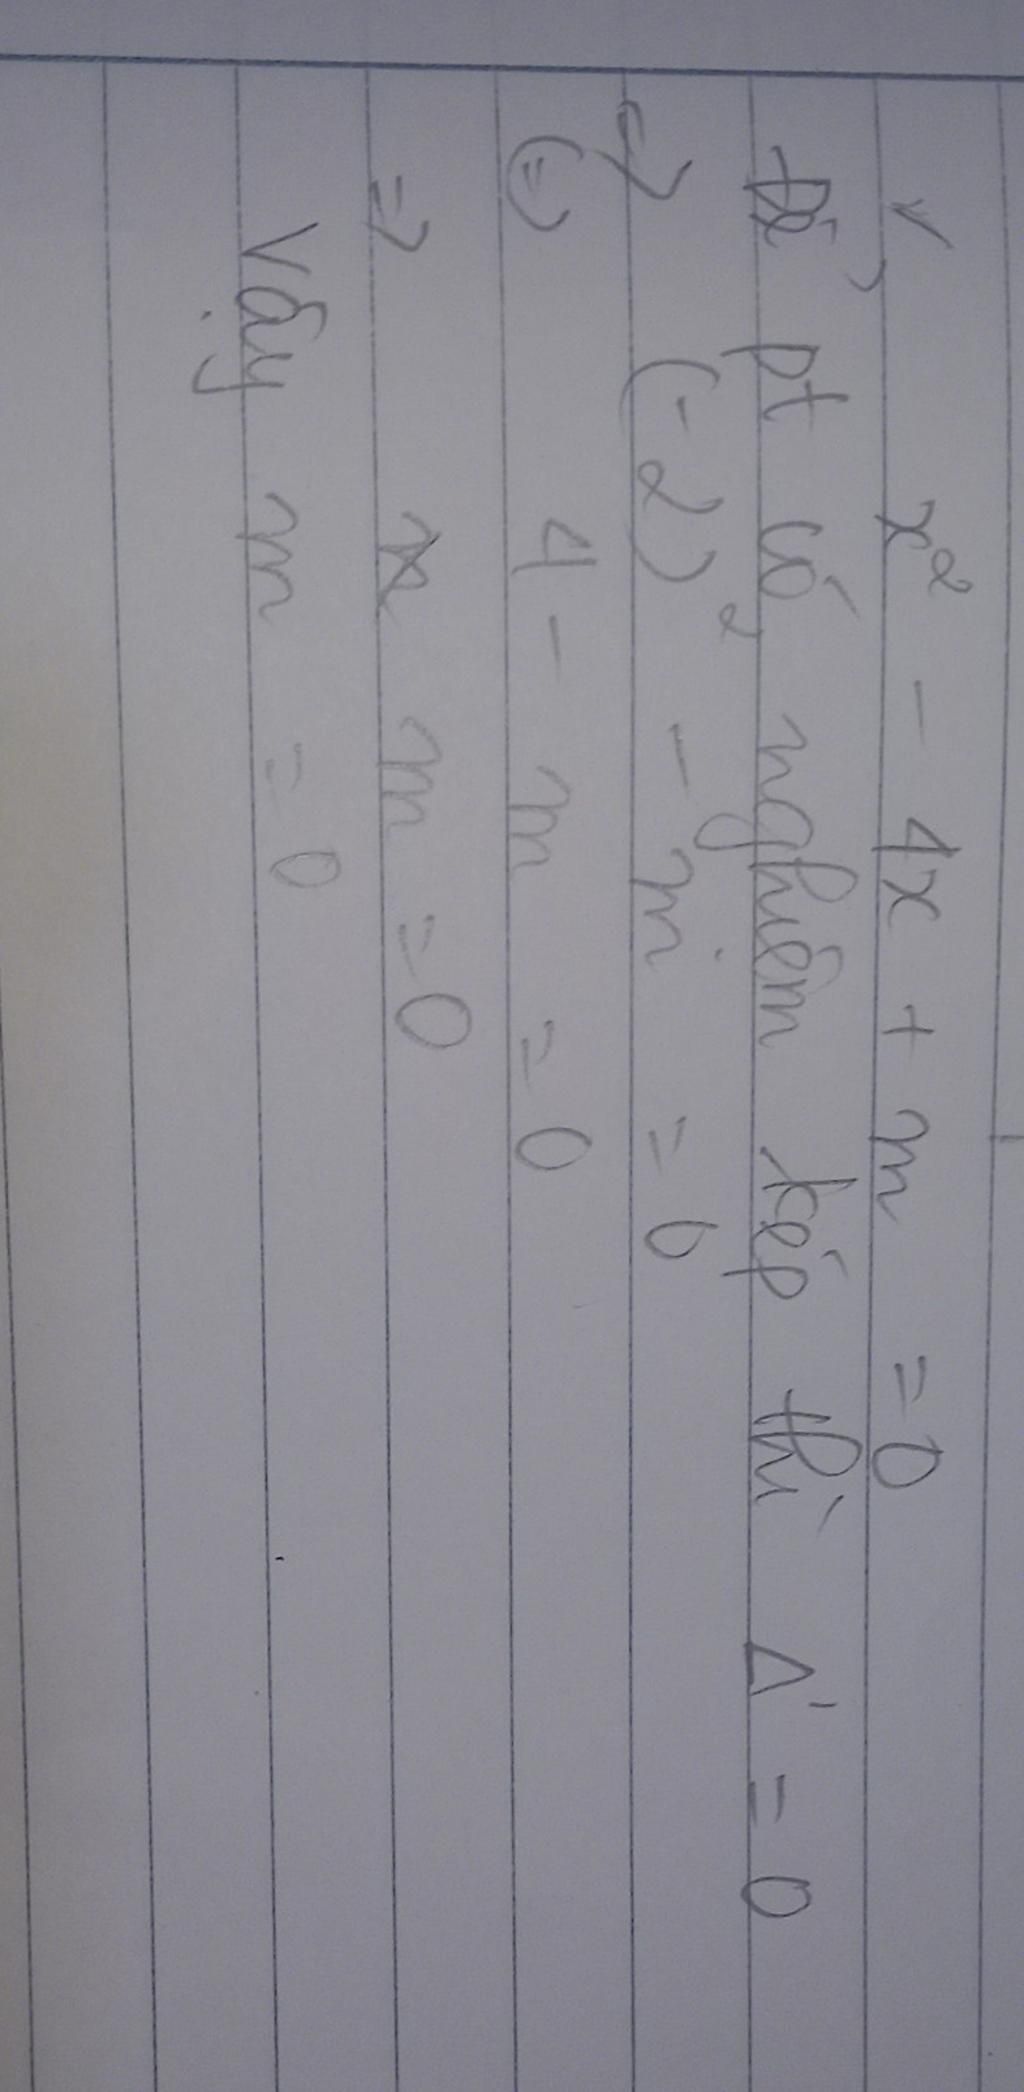 x² - 4x + m = 0
Để pt có nghiệm kép thì Δ' = 0
=> (-2)² - m = 0
(=) 4 - m = 0
=> m = 0
Vậy m = 0